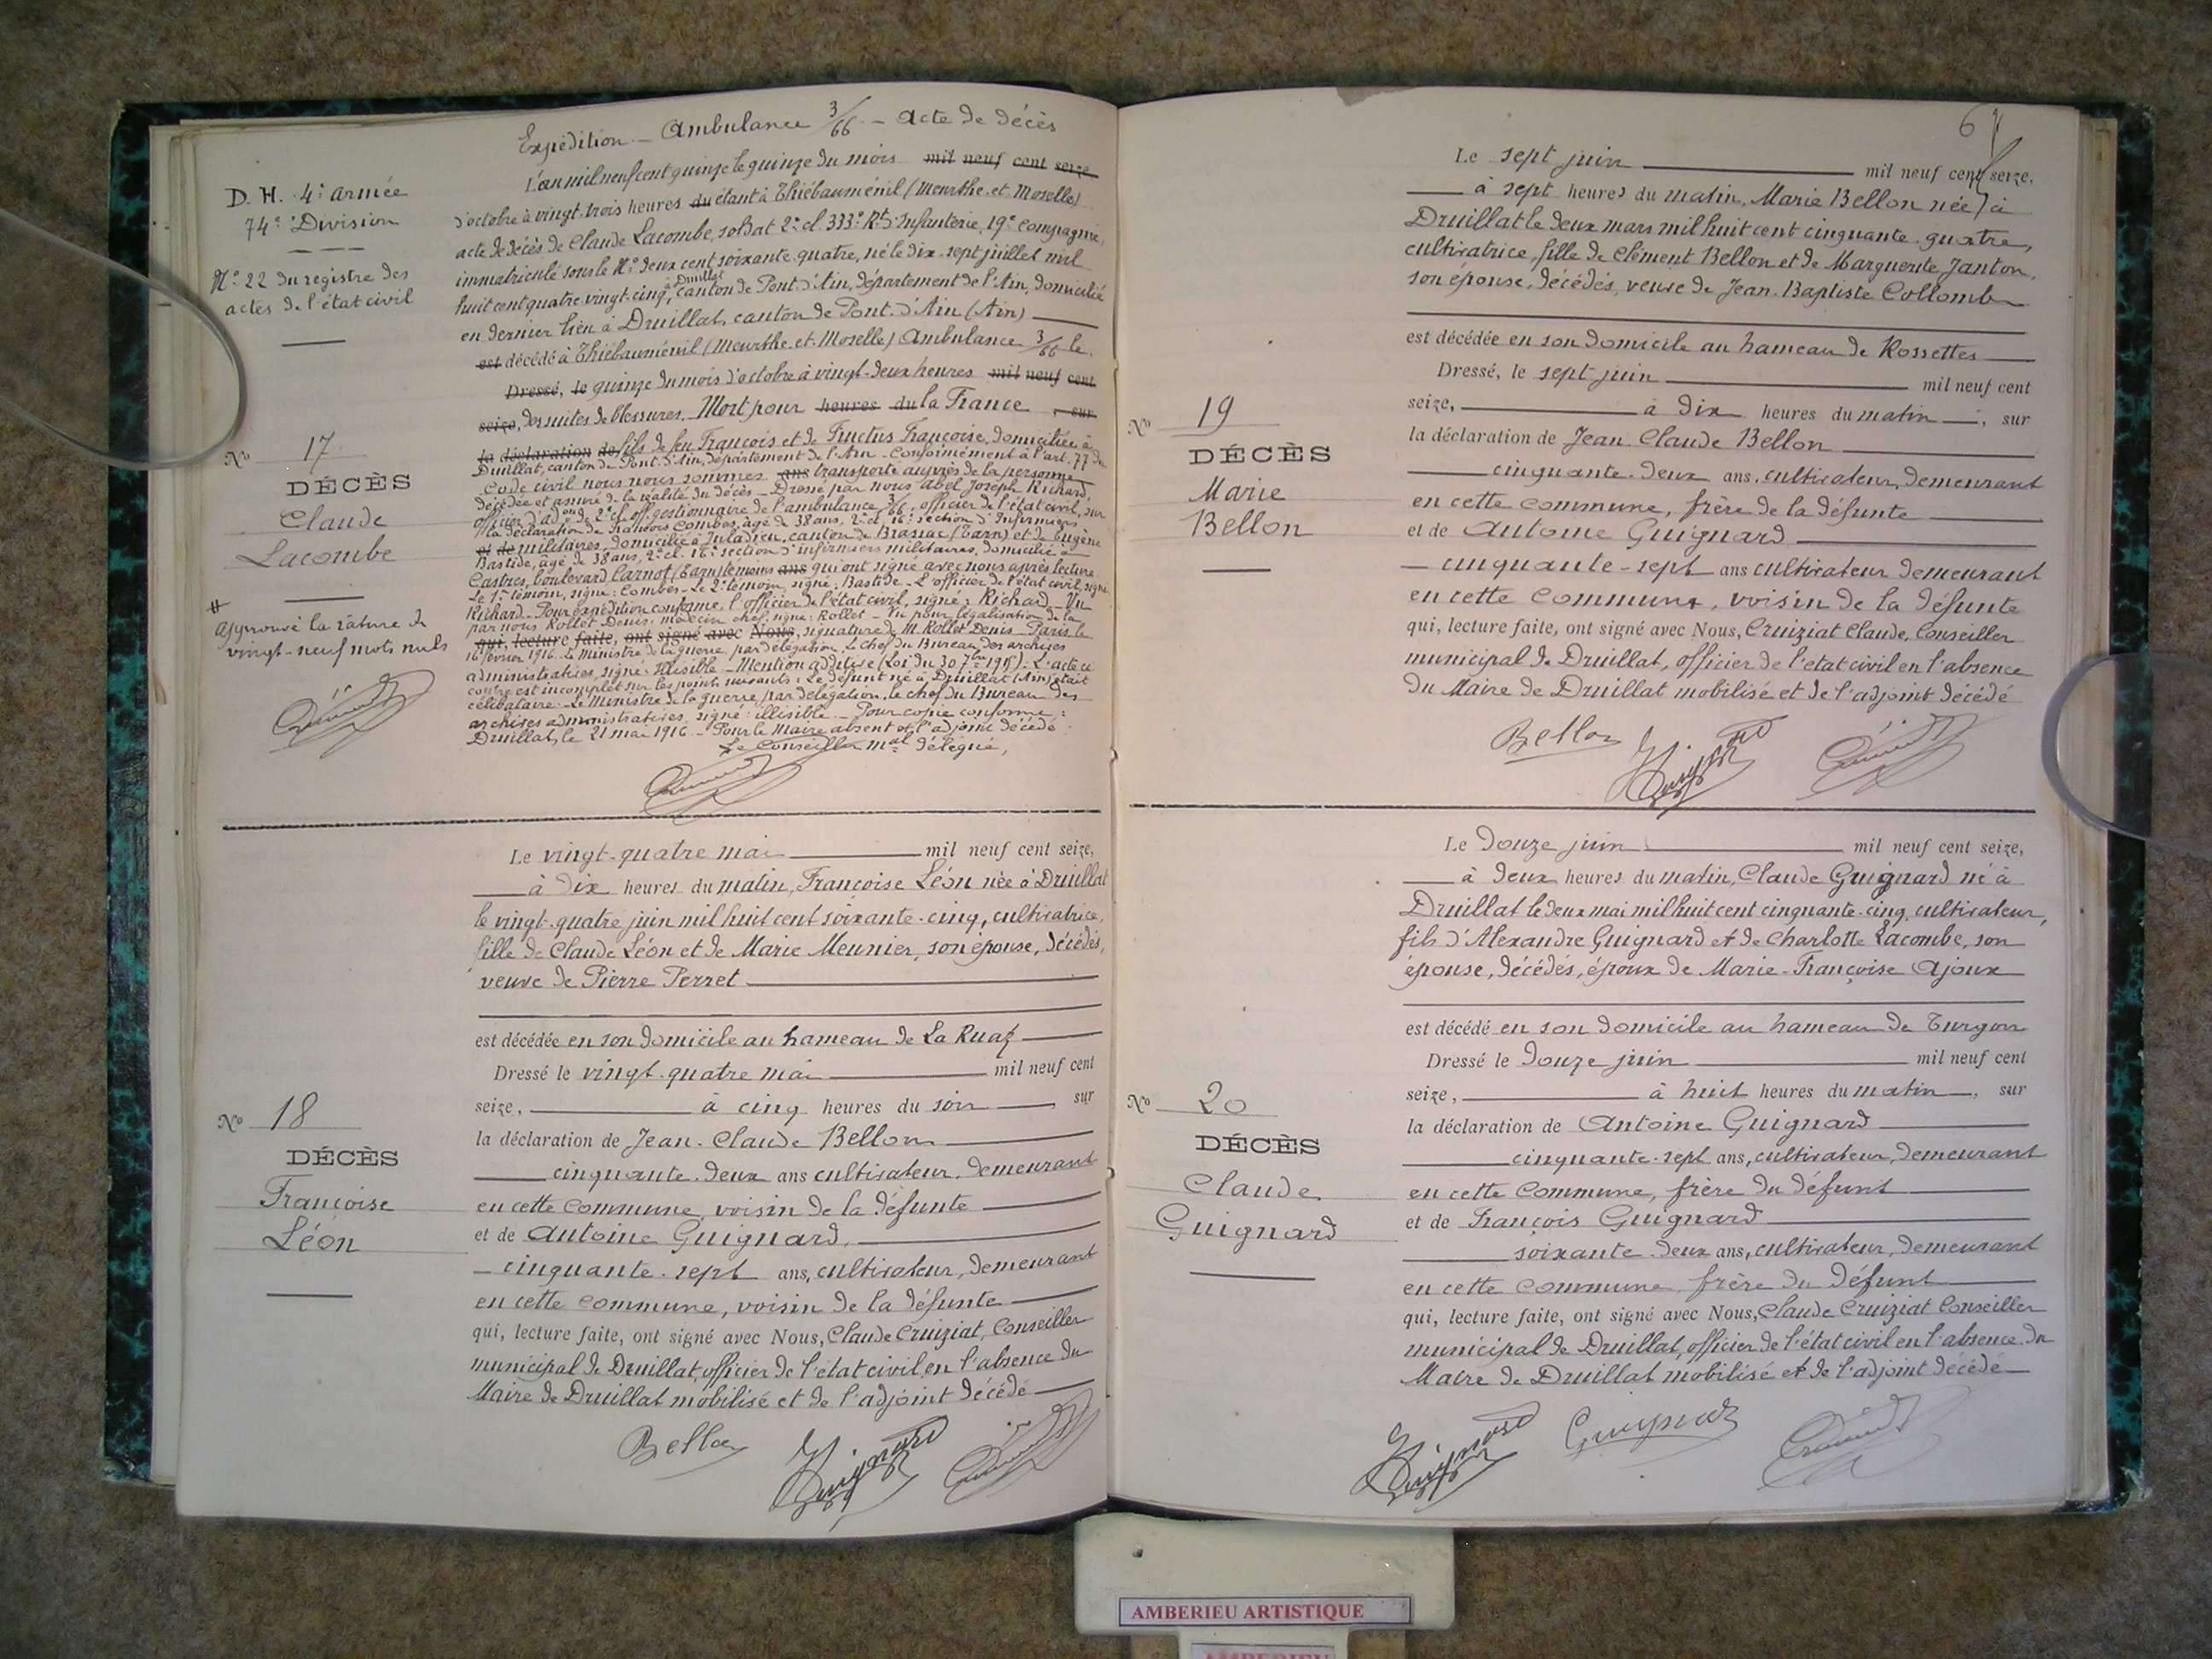 Expédition — Ambulance 3/66 — Acte de décès
D. H. 4e Armée
74e Division
No 22 du registre des
actes de l'état civil
No 17
DÉCÈS
Claude
Lacombe
approuvé la rature de
vingt-neuf mots nuls
L'an mil neuf cent quinze le quinze du mois mil neuf cent seize
d'octobre à vingt-trois heures du étant à Thiébauménil (Meurthe-et-Moselle)
acte de décès de Claude Lacombe, soldat 2e cl. 333e Rt d'Infanterie, 19e compagnie,
immatriculé sous le No deux cent soixante-quatre, né le dix-sept juillet mil
huit cent quatre-vingt-cinq, à Druillat canton de Pont-d'Ain, département de l'Ain, domicilié
en dernier lieu à Druillat, canton de Pont-d'Ain (Ain)
est décédé à Thiébauménil (Meurthe-et-Moselle) Ambulance 3/66 le
Dressé, le quinze du mois d'octobre à vingt-deux heures mil neuf cent
seize, des suites de blessures. Mort pour heures du la France , sur
la déclaration de fils de feu François et de Fructus Françoise, domiciliée à
Druillat, canton de Pont-d'Ain, département de l'Ain. Conformément à l'art. 77 du
Code civil nous nous sommes ans transporté auprès de la personne
décédée et assuré de la réalité du décès — Dressé par nous Abel Joseph Richard,
officier d'adon de 2e cl. off. gestionnaire de l'ambulance 3/66, officier de l'état civil, sur
la déclaration de François Combes, âgé de 38 ans, 2e cl. 16e section d'Infirmiers
et de militaires, domicilié à, canton de Brassac (Tarn) et de Eugène
Bastide, âgé de 38 ans, 2e cl. 16e section d'infirmiers militaires, domicilié à
Castres, boulevard Carnot (Tarn) témoins ans qui ont signé avec nous après lecture.
Le 1er témoin, signé: Combes — Le 2e témoin, signé: Bastide — L'officier de l'état civil, signé
Richard — Pour expédition conforme, l'officier de l'état civil, signé: Richard — Vu
par nous Rollet Denis, médecin chef, signé: Rollet — Vu pour légalisation de la
qui, lecture faite, ont signé avec Nous, signature de M. Rollet Denis — Paris le
16 février 1916. Le Ministre de la guerre, par délégation, le chef du Bureau des archives
administratives, signé: illisible — Mention additive (Loi du 30 7bre 1915). L'acte ci
contre est incomplet sur les points suivants: Le défunt né à Druillat (Ain) était
célibataire. Le Ministre de la guerre, par délégation, le chef du Bureau des
archives administratives, signé: illisible — Pour copie conforme:
Druillat, le 21 mai 1916 — Pour le Maire absent et l'adjoint décédé
Le Conseiller mal délégué,
No 18
DÉCÈS
Françoise
Léon
Le vingt-quatre mai mil neuf cent seize,
à dix heures du matin, Françoise Léon née à Druillat
le vingt-quatre juin mil huit cent soixante-cinq, cultivatrice,
fille de Claude Léon et de Marie Meunier, son épouse, décédés,
veuve de Pierre Perret
est décédée en son domicile au hameau de La Ruaz
Dressé le vingt-quatre mai mil neuf cent
seize, à cinq heures du soir, sur
la déclaration de Jean-Claude Bellon
cinquante-deux ans cultivateur, demeurant
en cette commune, voisin de la défunte
et de Antoine Guignard,
cinquante-sept ans, cultivateur, demeurant
en cette commune, voisin de la défunte
qui, lecture faite, ont signé avec Nous, Claude Cruiziat, Conseiller
municipal de Druillat, officier de l'état civil, en l'absence du
Maire de Druillat mobilisé et de l'adjoint décédé
Bellon Guignard
No 19
DÉCÈS
Marie
Bellon
Le sept juin mil neuf cent seize,
à sept heures du matin, Marie Bellon née à
Druillat le deux mars mil huit cent cinquante-quatre,
cultivatrice, fille de Clément Bellon et de Marguerite Janton,
son épouse, décédés, veuve de Jean-Baptiste Collomb
est décédée en son domicile au hameau de Rossettes
Dressé, le sept juin mil neuf cent
seize, à dix heures du matin, sur
la déclaration de Jean-Claude Bellon
cinquante-deux ans, cultivateur, demeurant
en cette commune, frère de la défunte
et de Antoine Guignard
cinquante-sept ans cultivateur demeurant
en cette commune, voisin de la défunte
qui, lecture faite, ont signé avec Nous, Cruiziat Claude, Conseiller
municipal de Druillat, officier de l'état civil en l'absence
du Maire de Druillat mobilisé et de l'adjoint décédé
Bellon Guignard
No 20
DÉCÈS
Claude
Guignard
Le douze juin mil neuf cent seize,
à deux heures du matin, Claude Guignard né à
Druillat le deux mai mil huit cent cinquante-cinq, cultivateur,
fils d'Alexandre Guignard et de Charlotte Lacombe, son
épouse, décédés, époux de Marie-Françoise Ajoux
est décédé en son domicile au hameau de Turgon
Dressé le douze juin mil neuf cent
seize, à huit heures du matin, sur
la déclaration de Antoine Guignard
cinquante-sept ans, cultivateur, demeurant
en cette commune, frère du défunt
et de François Guignard
soixante-deux ans, cultivateur, demeurant
en cette commune, frère du défunt
qui, lecture faite, ont signé avec Nous, Claude Cruiziat Conseiller
municipal de Druillat, officier de l'état civil en l'absence du
Maire de Druillat mobilisé et de l'adjoint décédé
Guignard Guignard
AMBERIEU ARTISTIQUE
AMBERIEU